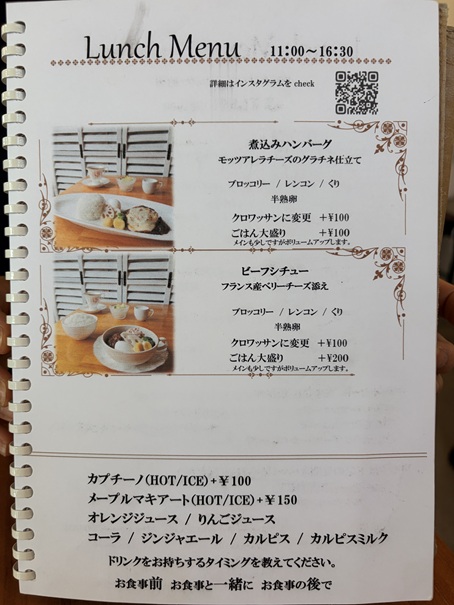 Lunch Menu 11:00～16:30
詳細はインスタグラムを check
煮込みハンバーグ
モッツアレラチーズのグラチネ仕立て
ブロッコリー / レンコン / くり
半熟卵
クロワッサンに変更 +¥100
ごはん大盛り +¥100
メインも少しですがボリュームアップします。
ビーフシチュー
フランス産ベリーチーズ添え
ブロッコリー / レンコン / くり
半熟卵
クロワッサンに変更 +¥100
ごはん大盛り +¥200
メインも少しですがボリュームアップします。
カプチーノ(HOT/ICE)+¥100
メープルマキアート(HOT/ICE)+¥150
オレンジジュース / りんごジュース
コーラ / ジンジャエール / カルピス / カルピスミルク
ドリンクをお持ちするタイミングを教えてください。
お食事前 お食事と一緒に お食事の後で